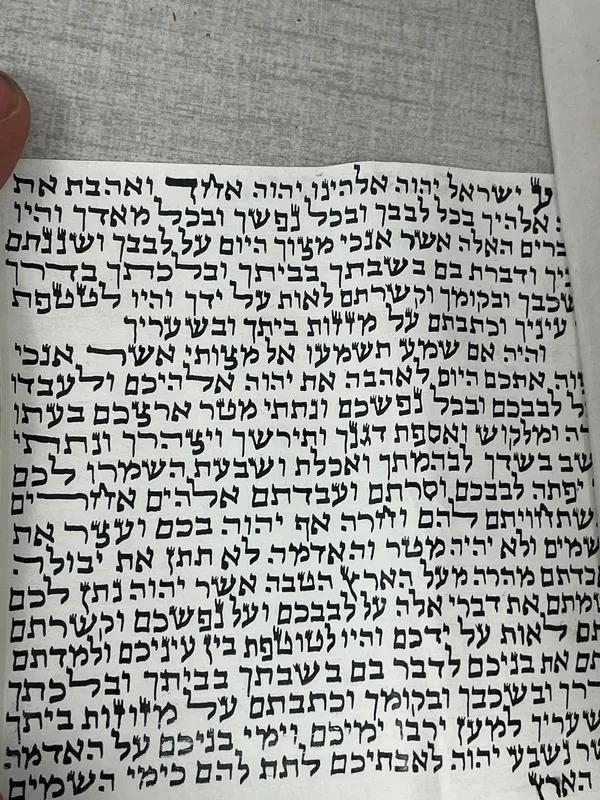 ע ישראל יהוה אלהינו יהוה אחד ואהבת את
אלהיך בכל לבבך ובכל נפשך ובכל מאדך והיו
ברים האלה אשר אנכי מצוך היום על לבבך ושננתם
ניך ודברת בם בשבתך בביתך ובלכתך בדרך
שכבך ובקומך וקשרתם לאות על ידך והיו לטטפת
עיניך וכתבתם על מזזות ביתך ובשעריך
והיה אם שמע תשמעו אל מצותי אשר אנכי
וה אתכם היום לאהבה את יהוה אלהיכם ולעבדו
ל לבבכם ובכל נפשכם ונתתי מטר ארצכם בעתו
רה ומלקוש ואספת דגנך ותירשך ויצהרך ונתתי
שב בשדך לבהמתך ואכלת ושבעת השמרו לכם
יפתה לבבכם וסרתם ועבדתם אלהים אחרים
שתחויתם להם וחרה אף יהוה בכם ועצר את
שמים ולא יהיה מטר והאדמה לא תתן את יבולה
אבדתם מהרה מעל הארץ הטבה אשר יהוה נתן לכם
שמתם את דברי אלה על לבבכם ועל נפשכם וקשרתם
תם לאות על ידכם והיו לטוטפת בין עיניכם ולמדתם
תם את בניכם לדבר בם בשבתך בביתך ובלכתך
דרך ובשכבך ובקומך וכתבתם על מזוזות ביתך
שעריך למען ירבו ימיכם וימי בניכם על האדמה
שר נשבע יהוה לאבתיכם לתת להם כימי השמים
הארץ